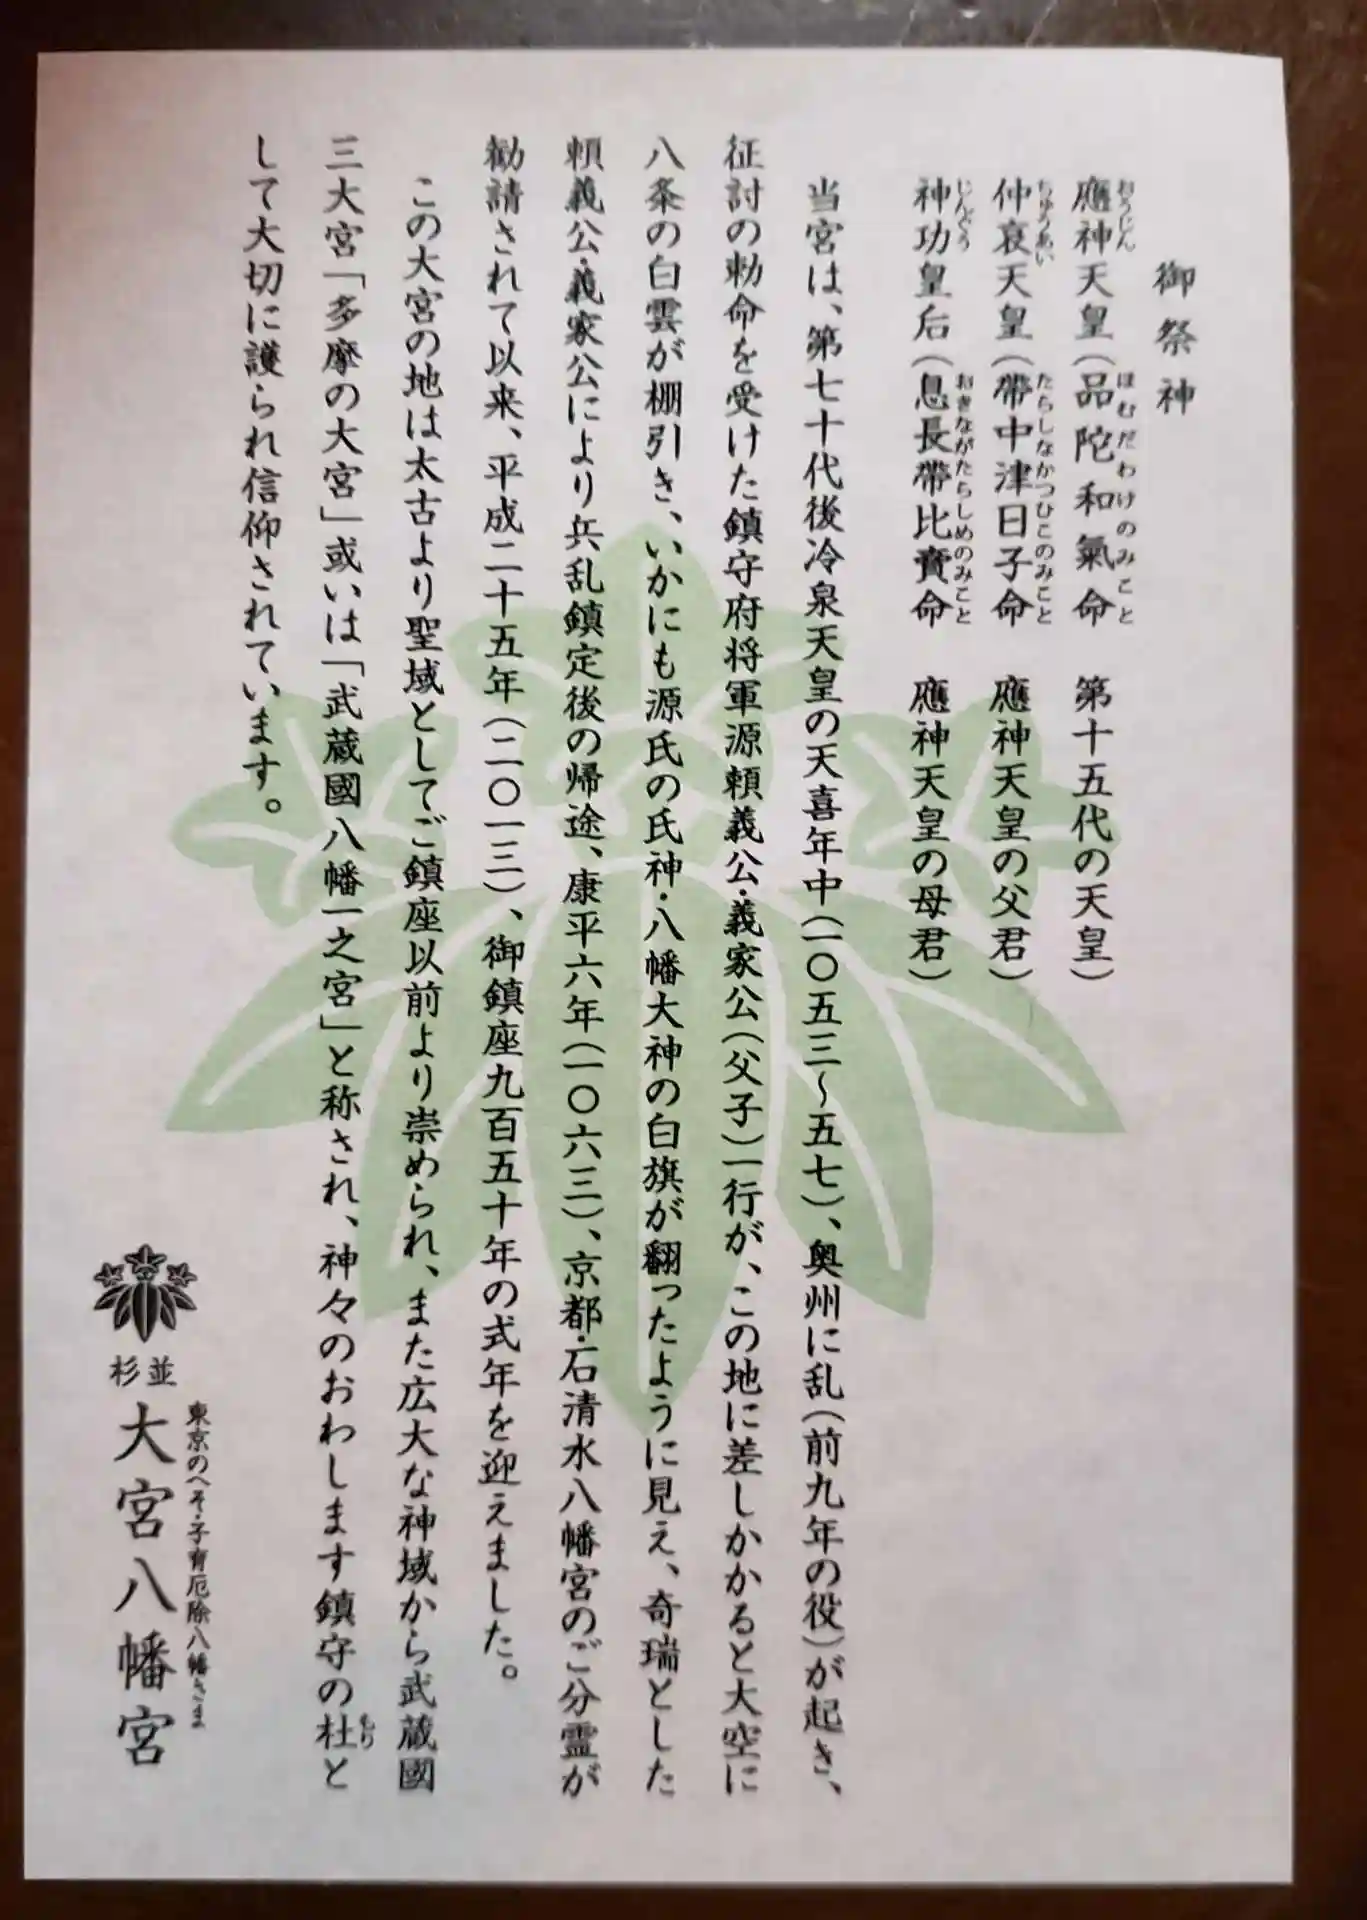 御祭神
應神天皇（品陀和氣命　第十五代の天皇）
おうじん　ほむだわけのみこと
仲哀天皇（帶中津日子命　應神天皇の父君）
ちゅうあい　たらしなかつひこのみこと
神功皇后（息長帶比賣命　應神天皇の母君）
じんぐう　おきながたらしひめのみこと
当宮は、第七十代後冷泉天皇の天喜年中（一〇五三～五七）、奥州に乱（前九年の役）が起き、
征討の勅命を受けた鎮守府将軍源頼義公・義家公（父子）一行が、この地に差しかかると大空に
八条の白雲が棚引き、いかにも源氏の氏神・八幡大神の白旗が翻ったように見え、奇瑞とした
頼義公・義家公により兵乱鎮定後の帰途、康平六年（一〇六三）、京都・石清水八幡宮のご分霊が
勧請されて以来、平成二十五年（二〇一三）、御鎮座九百五十年の式年を迎えました。
この大宮の地は太古より聖域としてご鎮座以前より崇められ、また広大な神域から武蔵國
三大宮「多摩の大宮」或いは「武蔵國八幡一之宮」と称され、神々のおわします鎮守の杜と
もり
して大切に護られ信仰されています。
東京のへそ・子育厄除八幡さま
杉並
大宮八幡宮